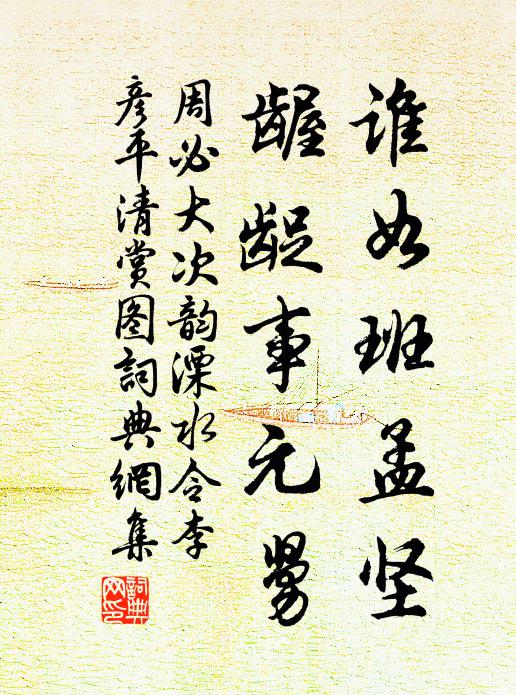 谁如班孟坚
龌龊事元舅
周必大次韵溧水令李
彦平清赏图詞典網集
詞典网印